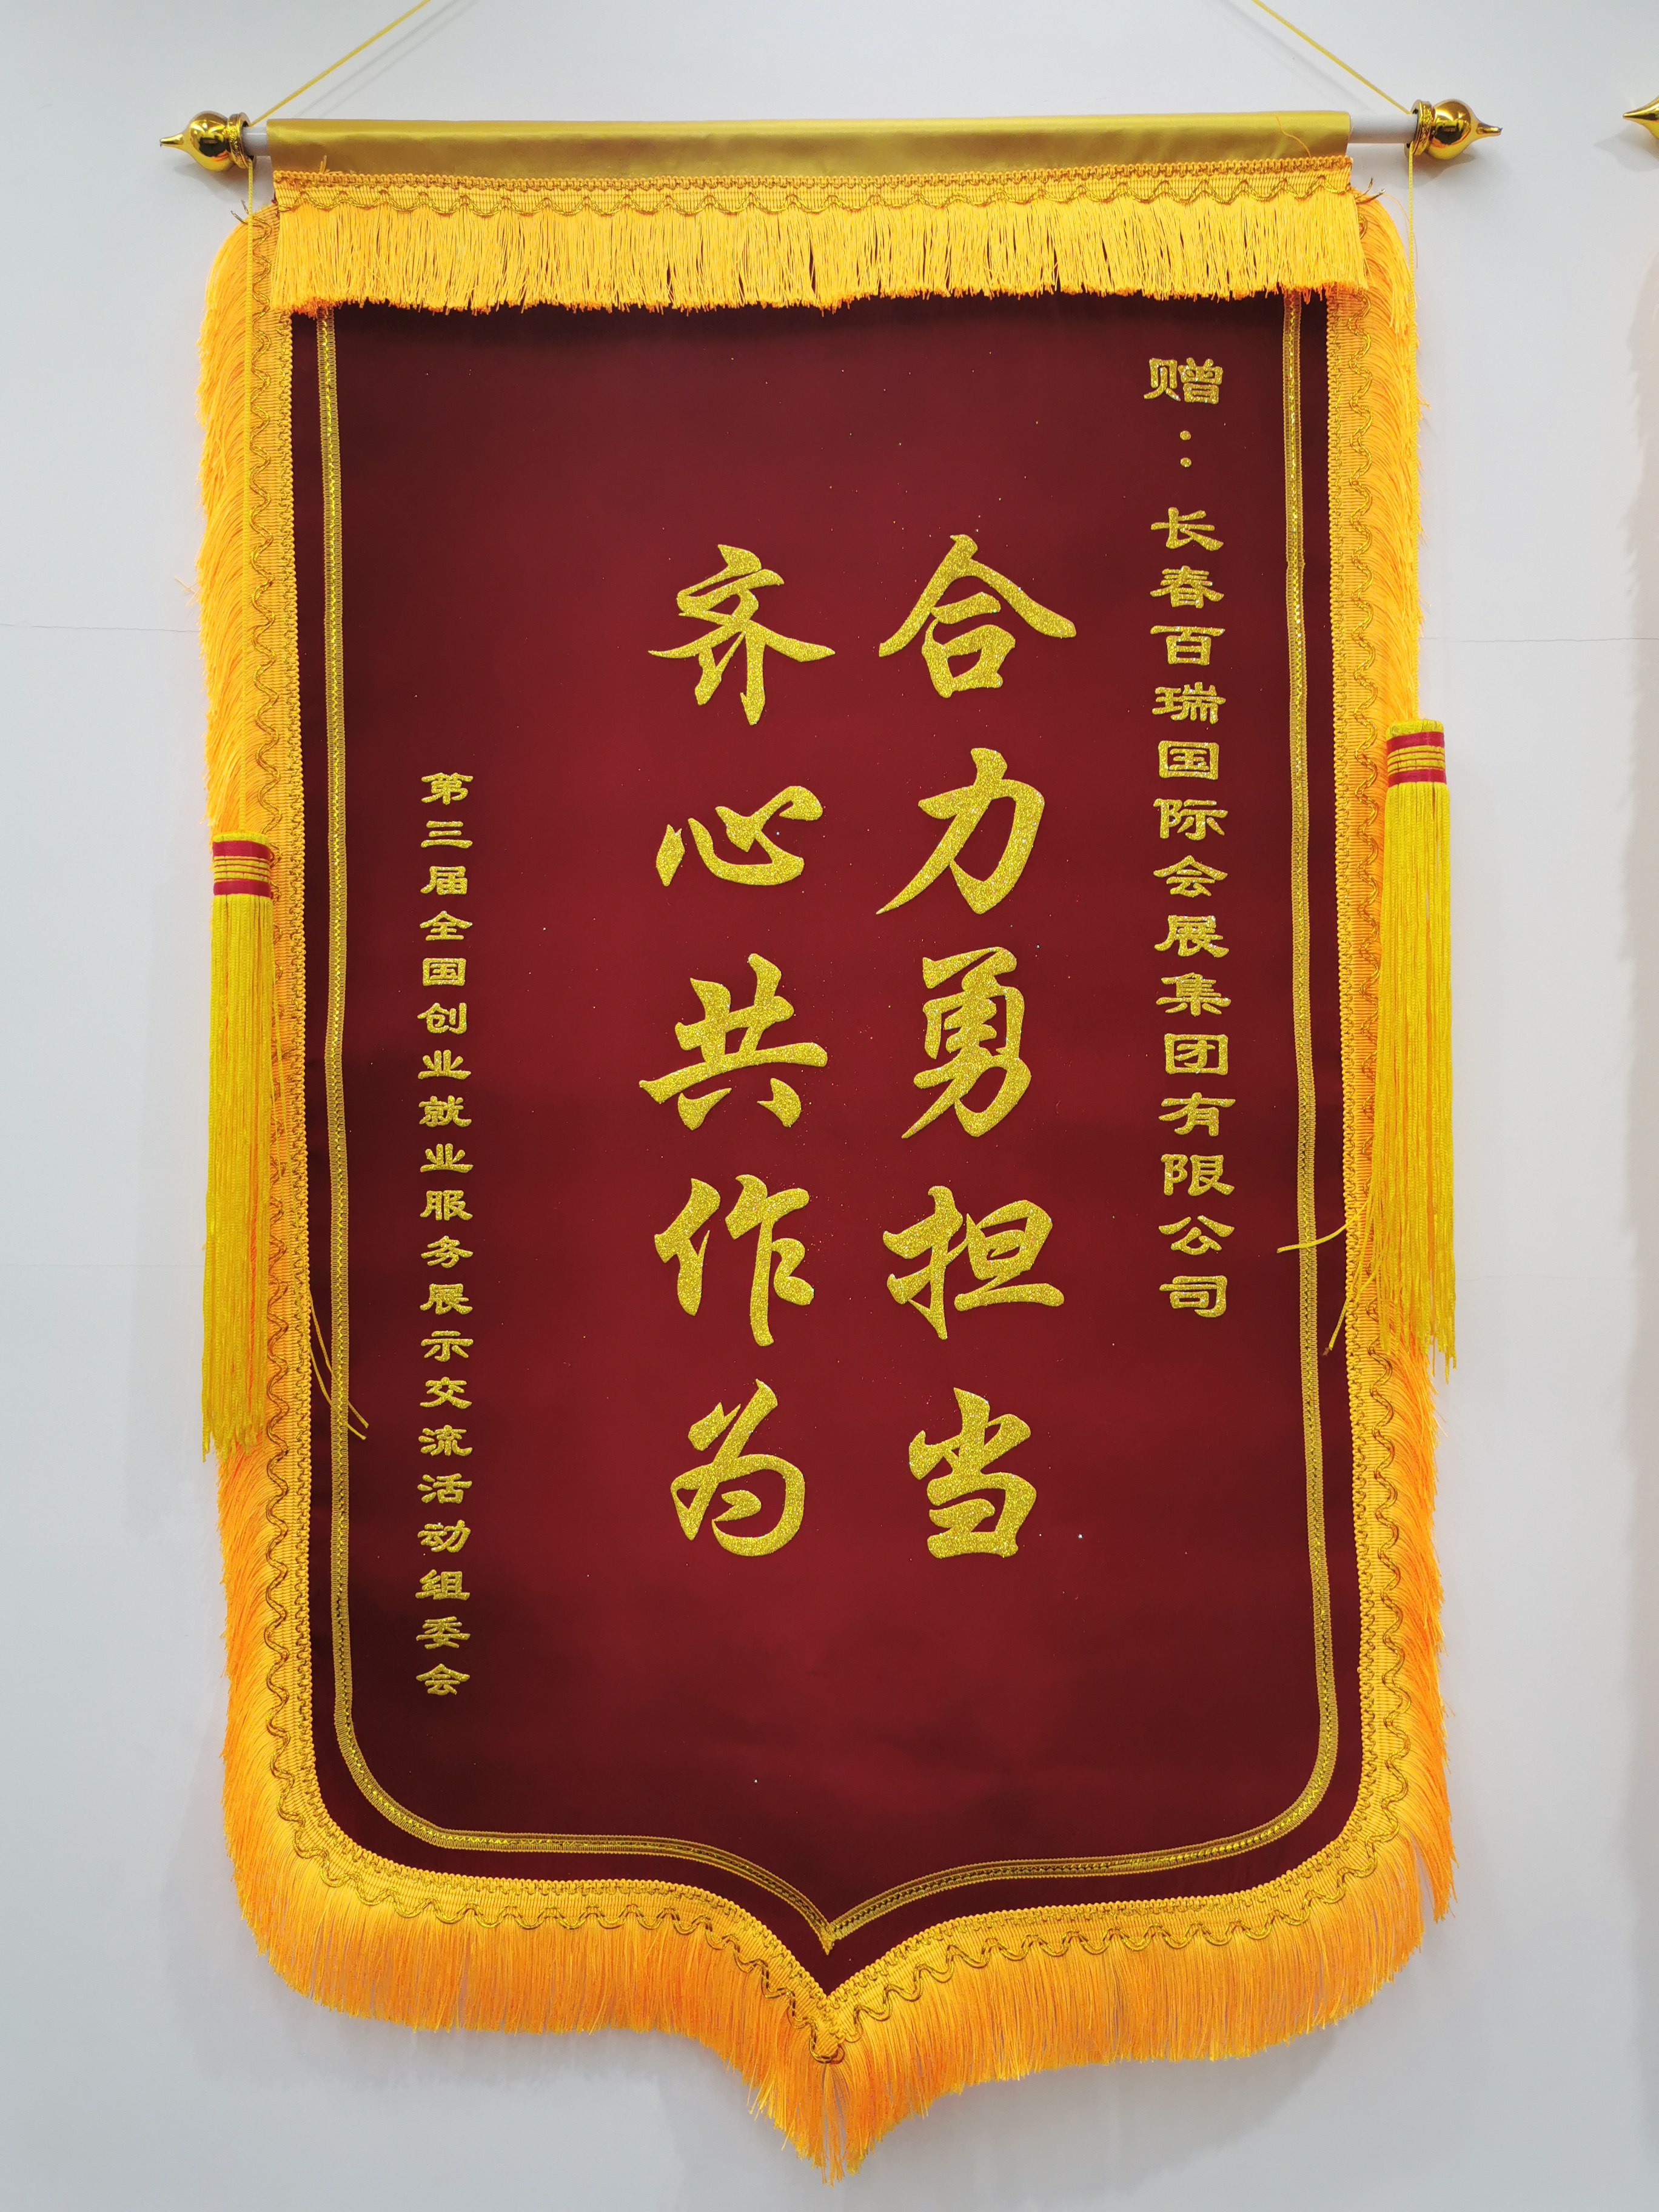 赠：长春百瑞国际会展集团有限公司
合力勇担当
齐心共作为
第三届全国创业就业服务展示交流活动组委会